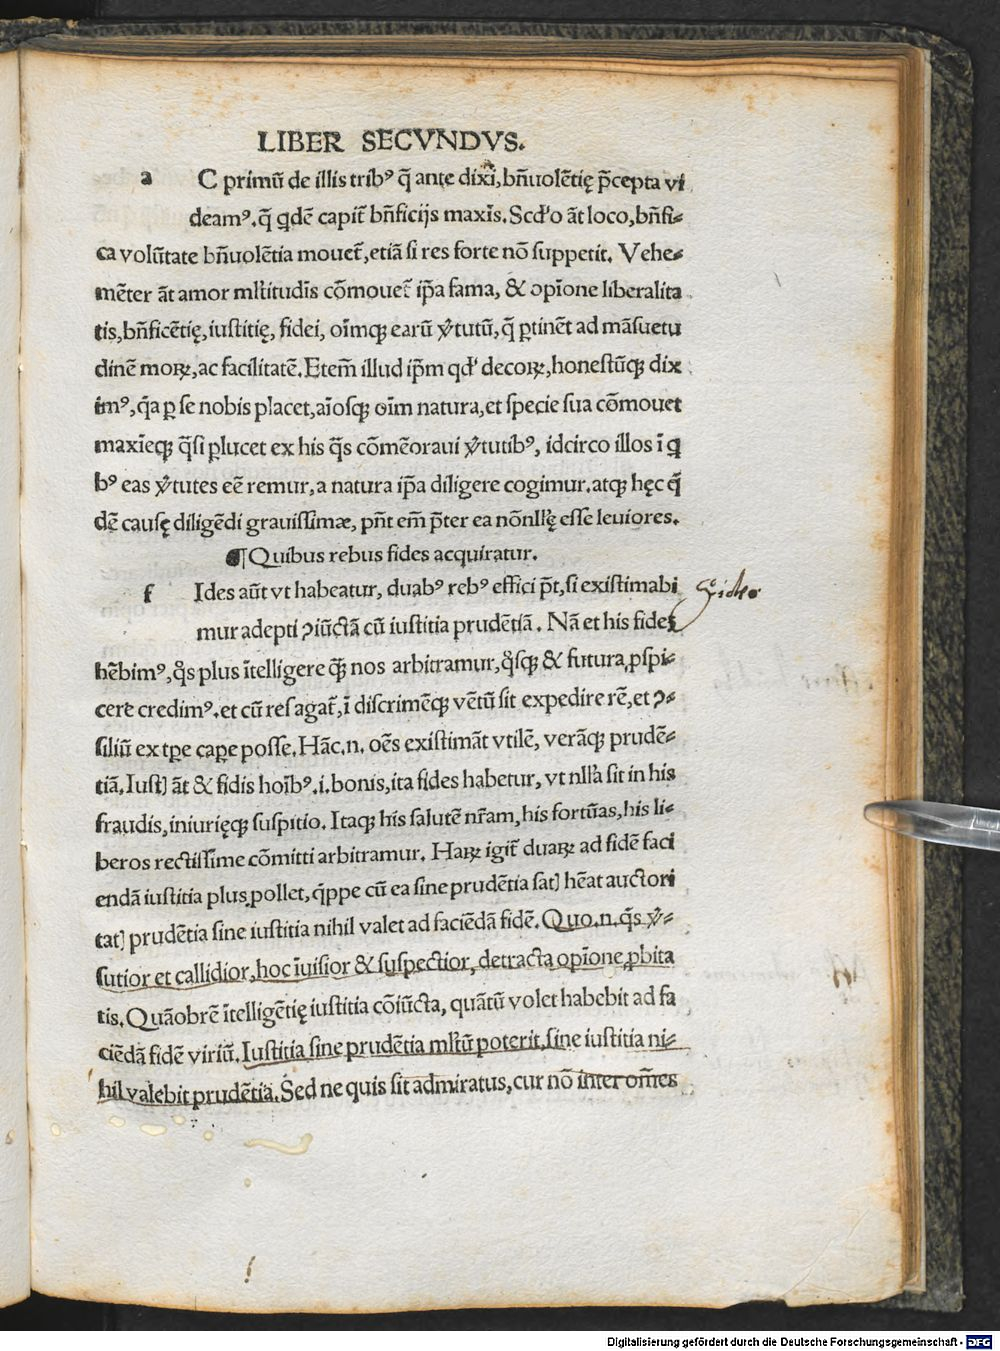 LIBER SECVNDVS.
a C primũ de illis tribꝰ q̃ ante dixi, bñuolẽtię p̃cepta vi
deamꝰ. q̃ qdẽ capit̃ bñficijs maxīs. Scd'o ãt loco, bñfi-
ca volũtate bñuolẽtia mouet̃, etiã si res forte nõ suppetit. Vehe-
mẽter ãt amor ml̃titudīs cõmouet̃ ip̃a fama, & opīone liberalita
tis, bñficẽtię, iustitię, fidei, oīmqꝫ earũ v̓tutũ, q̃ ꝑtinẽt ad mãsuetu
dinẽ moꝝ, ac facilitatẽ. Etem̃ illud ip̃m qd' decoꝝ, honestũqꝫ dix
imꝰ, q̃a ꝑ se nobis placet, aīosqꝫ oīm natura, et specie sua cõmouet
maxīeqꝫ q̃si ꝑlucet ex his q̃s cõmẽoraui v̓tutibꝰ, idcirco illos ī q
bꝰ eas v̓tutes eẽ remur, a natura ip̃a diligere cogimur. atqꝫ hęc q̃
dẽ causę diligẽdi grauissimæ, pñt em̃ p̃ter ea nõnll'ę esse leuiores.
¶ Quibus rebus fides acquiratur.
f Ides aũt vt habeatur, duabꝰ rebꝰ effici p̃t, si existimabi
mur adepti ꝯiũctã cũ iustitia prudẽtiã. Nã et his fideʒ
Fides
hẽbimꝰ, q̊s plus ītelligere q̃ꝫ nos arbitramur, q̊sqꝫ & futura ꝓspi-
cere credimꝰ. et cũ res agat̃, ī discrimẽqꝫ vẽtũ sit expedire rẽ, et ꝯ-
siliũ ex tꝑe caꝑe posse. Hãc. n. oẽs existimãt vtilẽ, verãqꝫ prudẽ-
tiã. Iustꝭ ãt & fidis hoībꝰ. i. bonis, ita fides habetur, vt nll'a sit in his
fraudis, iniurięqꝫ suspitio. Itaqꝫ his salutẽ nr̃am, his fortũas, his li-
beros rectissime cõmitti arbitramur. Haꝝ igit̃ duaꝝ ad fidẽ faci
endã iustitia plus pollet, q̃ppe cũ ea sine prudẽtia satꝭ hẽat auctori
tatꝭ prudẽtia sine iustitia nihil valet ad faciẽdã fidẽ. Quo. n. q̃s v̓-
sutior et callidior, hoc īuisior & suspectior, detracta opīone ꝓbita
tis. Quãobrẽ ītelligẽtię iustitia cõiũcta, quãtũ volet habebit ad fa
ciẽdã fidẽ viriũ. Iustitia sine prudẽtia ml̃tũ poterit, sine iustitia ni-
hil valebit prudẽtia. Sed ne quis sit admiratus, cur nõ inter om̃es
Digitalisierung gefördert durch die Deutsche Forschungsgemeinschaft - DFG